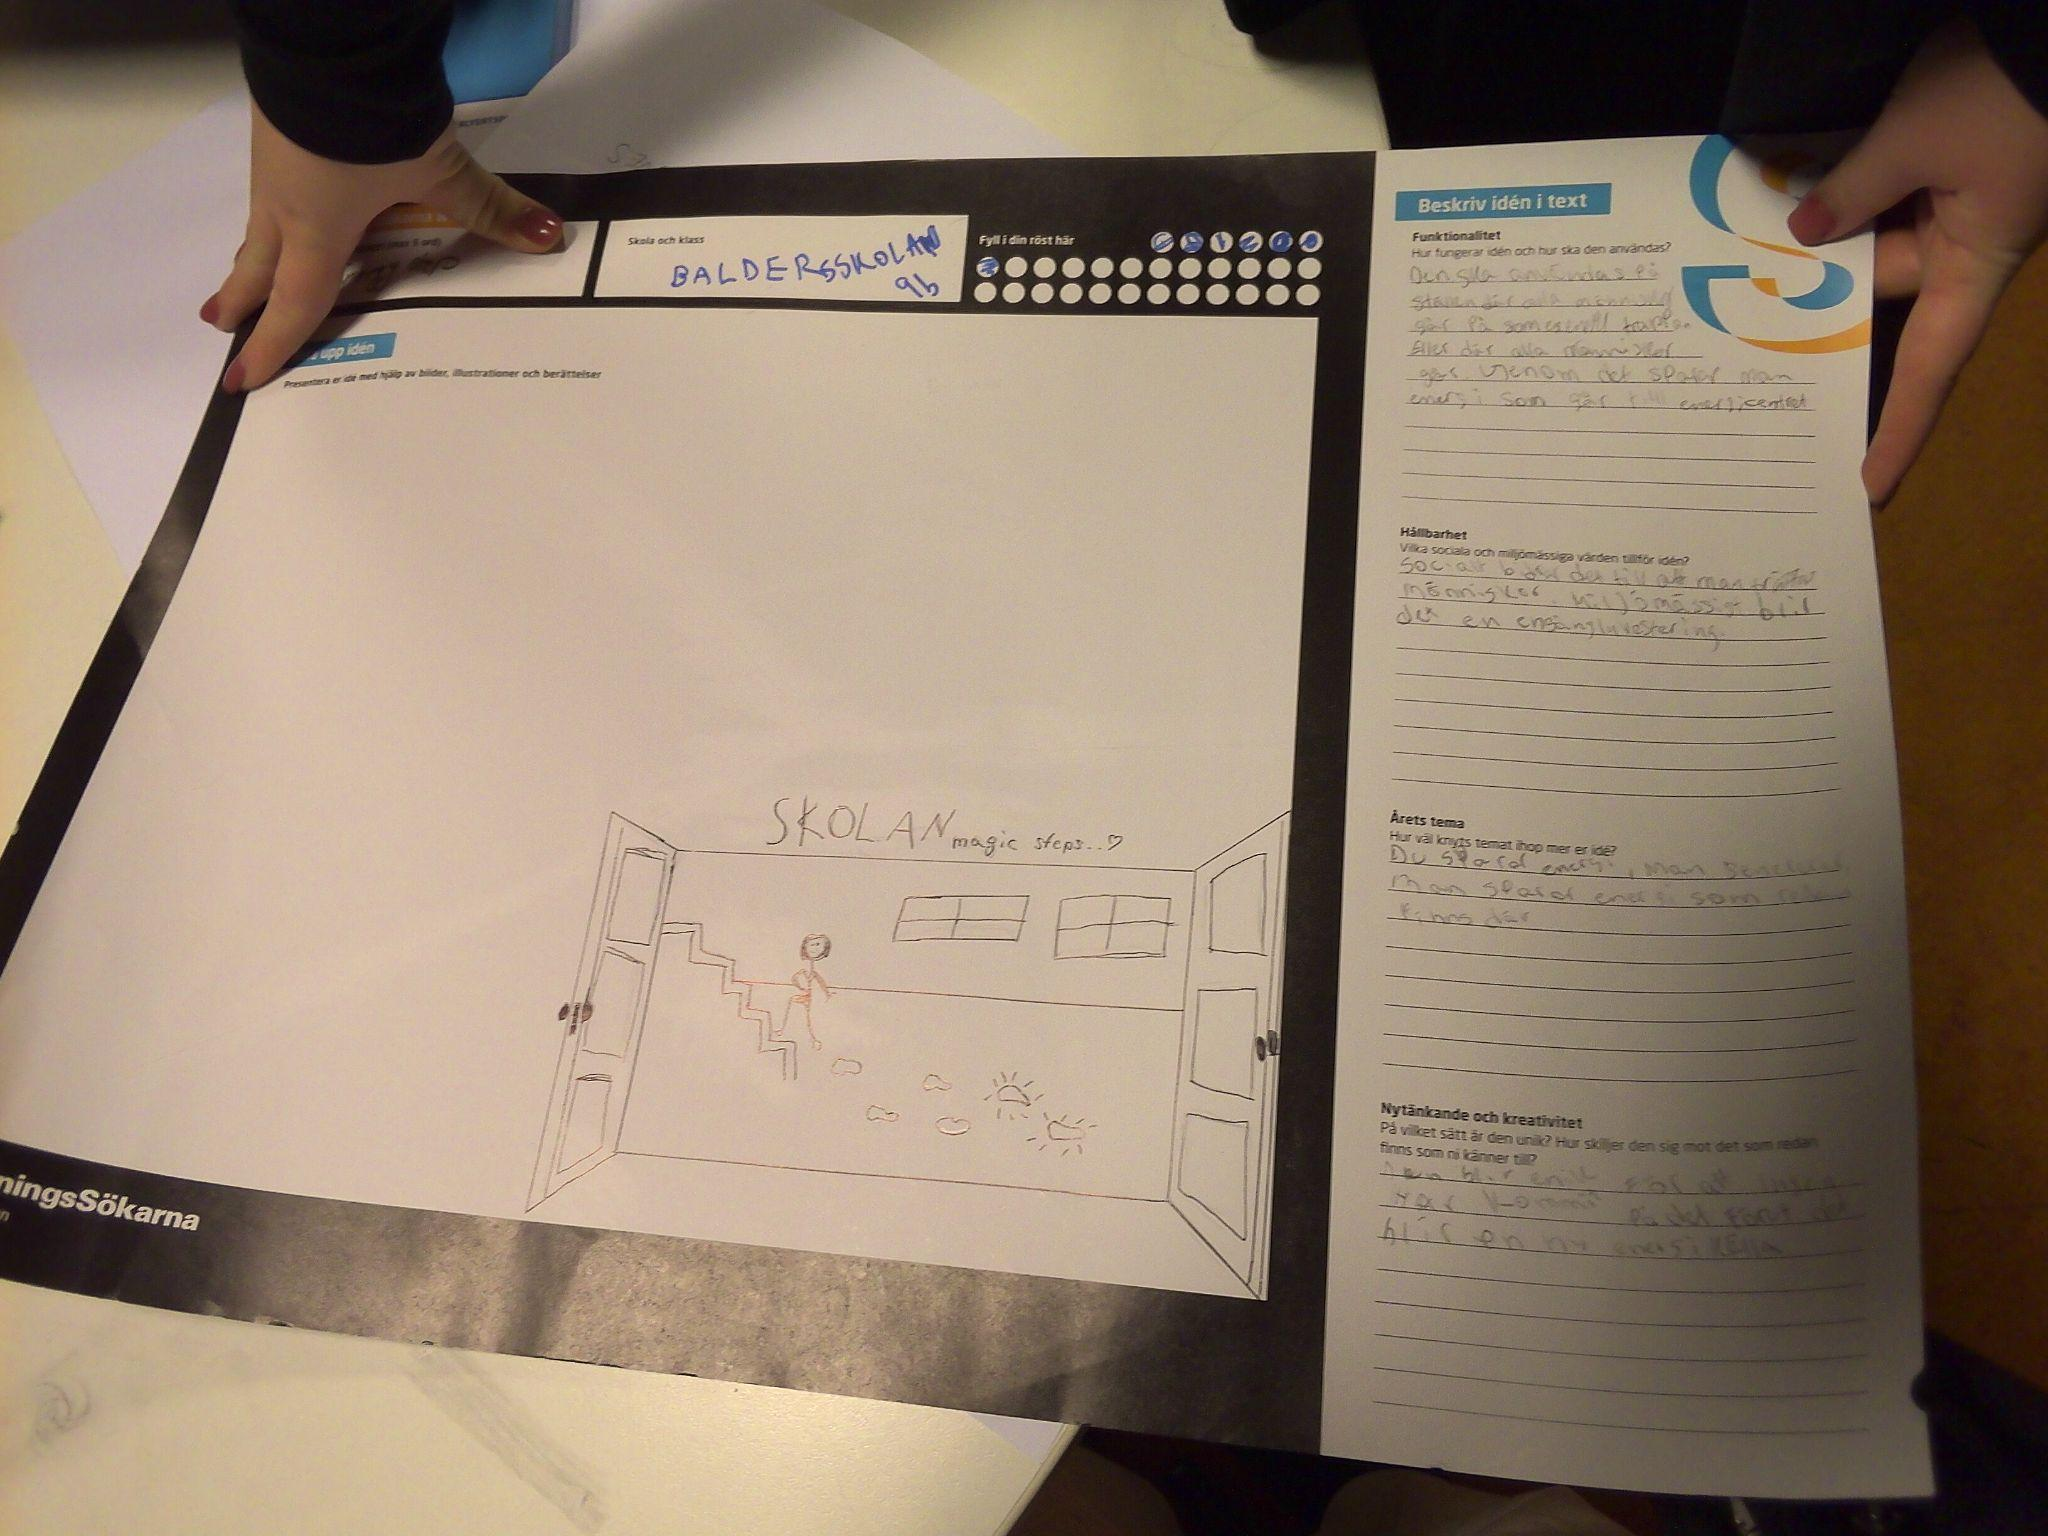 Skola och klass
BALDERSSKOLAN
9b
Fyll i din röst här
upp idén
Presentera er idé med hjälp av bilder, illustrationer och berättelser
SKOLAN magic steps..♡
ningsSökarna
Beskriv idén i text
Funktionalitet
Hur fungerar idén och hur ska den användas?
Den ska användas på
ställen där alla
går på som
Eller där alla människor
går. Genom det sparar man
energi som går till energicentret
Hållbarhet
Vilka sociala och miljömässiga värden tillför idén?
Socialt det till att man träffar
människor. Miljömässigt blir
det en
Årets tema
Hur väl knyts temat ihop mer er idé?
Du sparar energi, man
Man sparar energi som redan
finns där
Nytänkande och kreativitet
På vilket sätt är den unik? Hur skiljer den sig mot det som redan
finns som ni känner till?
Den blir unik för att ingen
har kommit på det förr
blir en ny energikälla